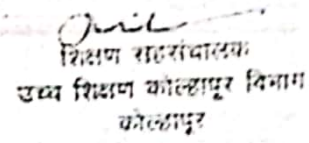 शिक्षण सहसंचालक
उच्च शिक्षण कोल्हापूर विभाग
कोल्हापूर